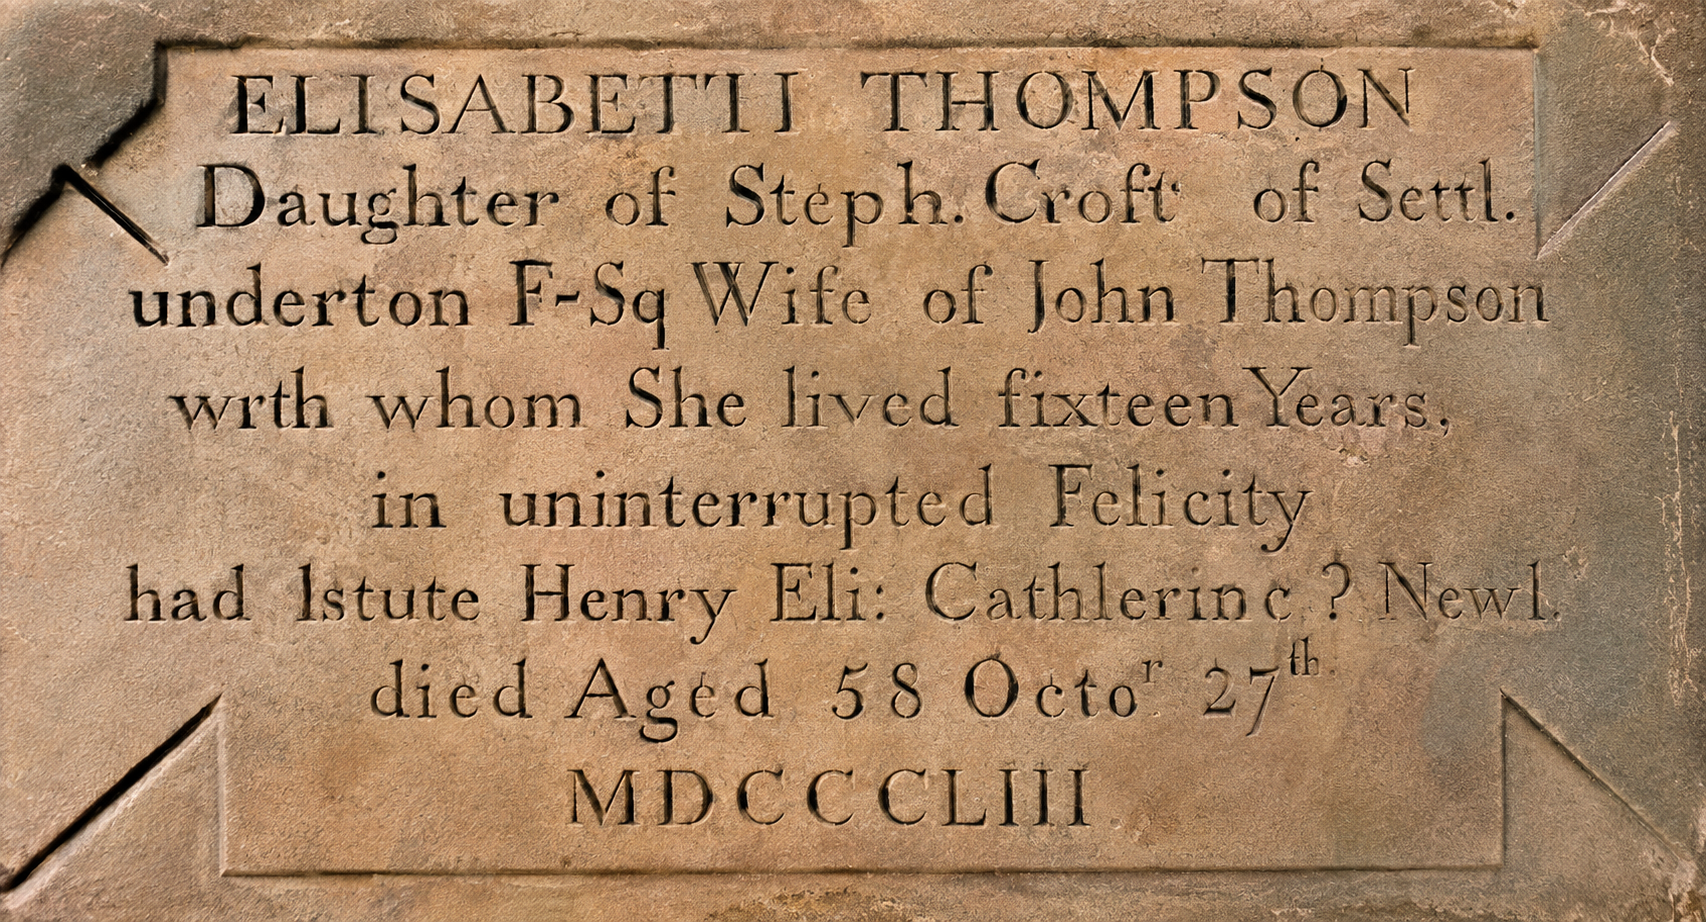 ELISABETH THOMPSON
Daughter of Steph. Croft of Settl.
underton F-Sq Wife of John Thompson
wrth whom She lived fixteen Years,
in uninterrupted Felicity
had Istute Henry Eli: Cathlerinc ? Newl.
died Aged 58 Octoʳ 27ᵗʰ
MDCCCLIII